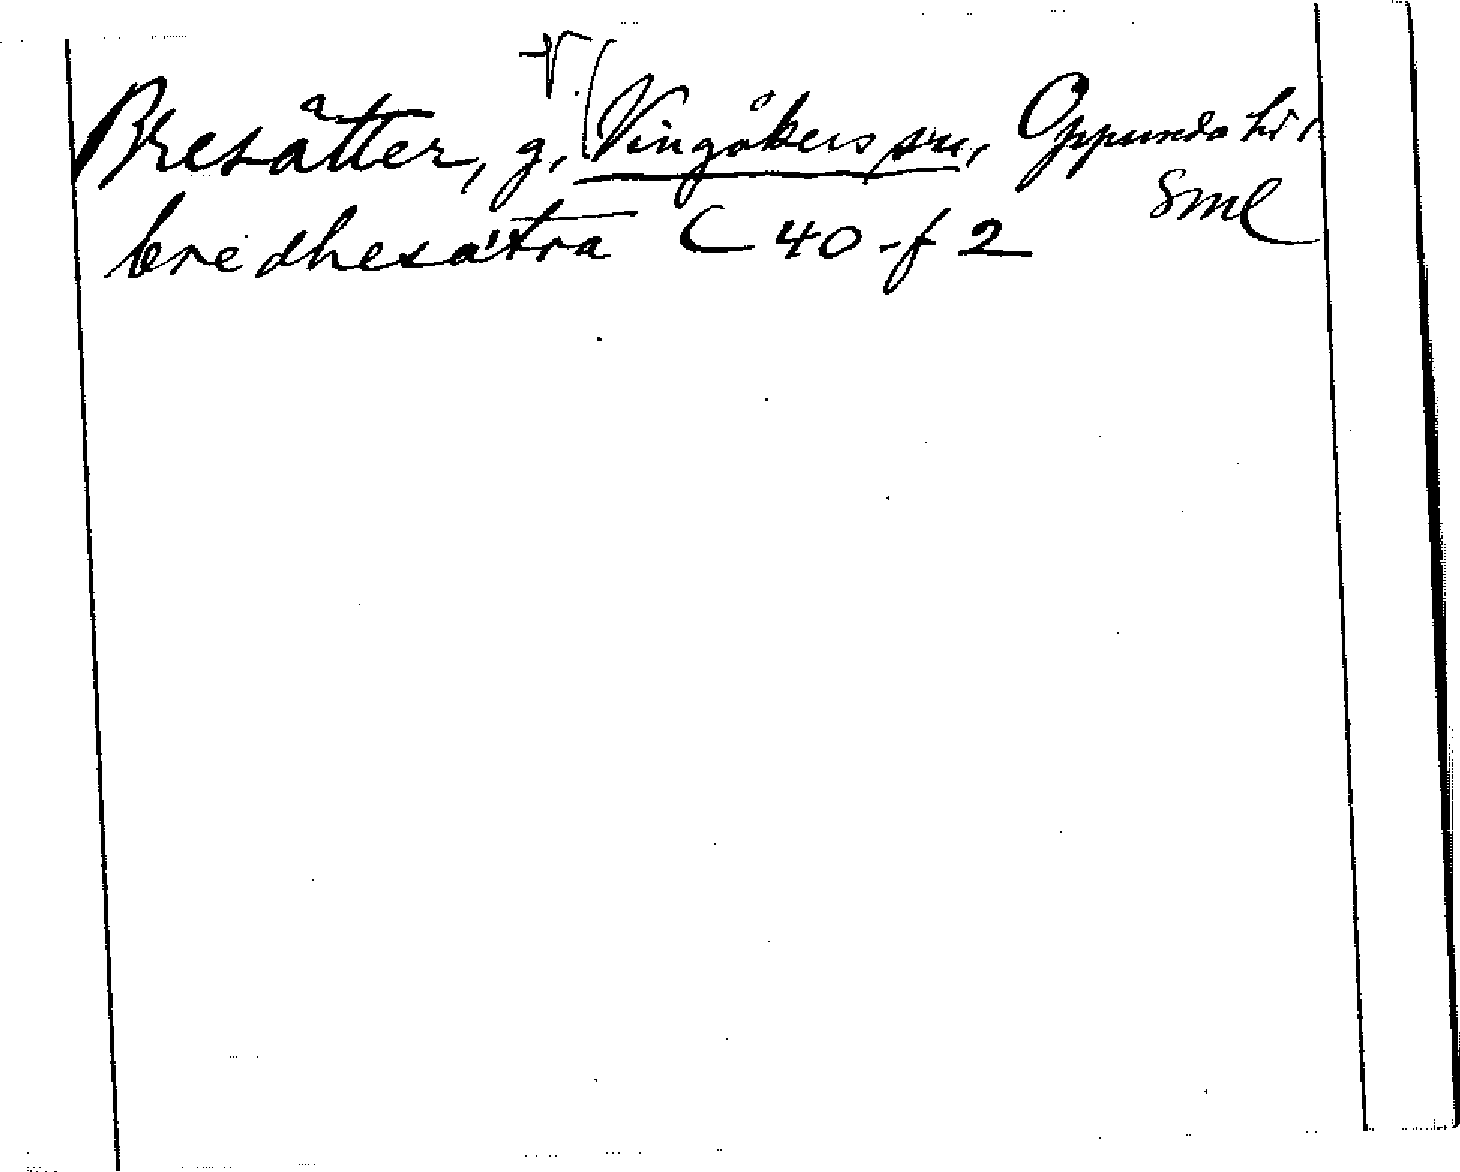 V.
Bresätter, g, (Vingåkers sn, Oppunda hd,
Sml
bredhesätra C 40 - f 2